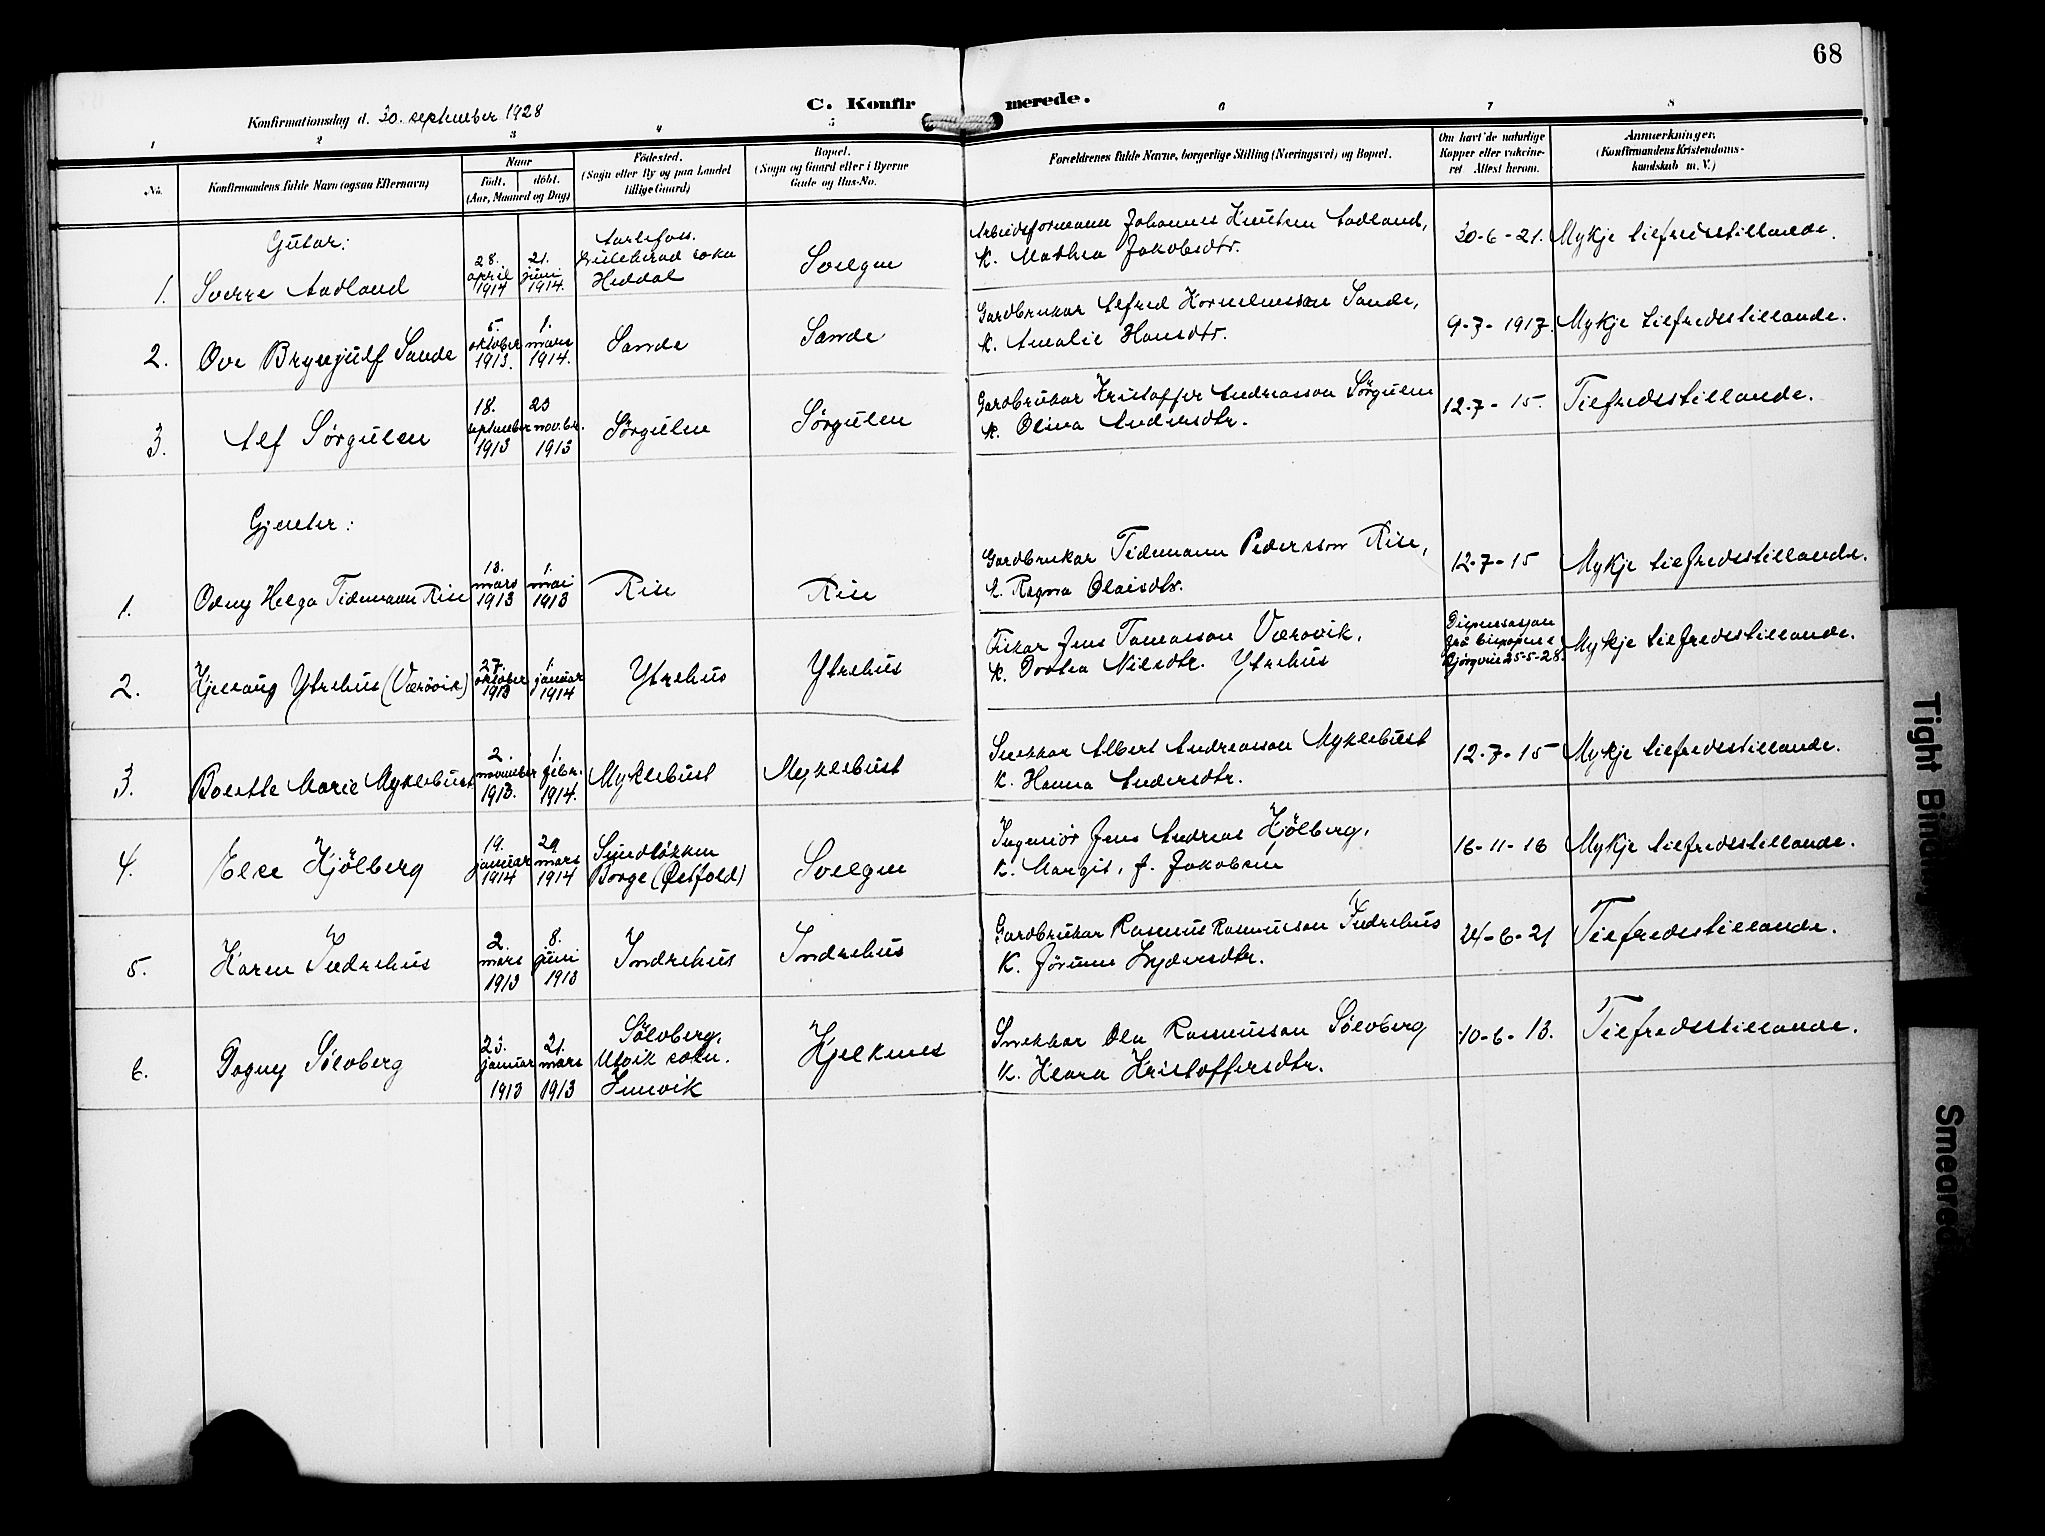 68
C. Konfirmerede.
Konfirmationsdag d. 30. september 1928
1 2 3 4 5 6 7 8
No.
Konfirmandens fulde Navn (ogsaa Efternavn)
Naar
Født, døbt.
(Aar, Maaned og Dag)
Fødested.
(Sogn eller By og paa Landet
tillige Gaard)
Bopæl.
(Sogn og Gaard eller i Byerne
Gade og Hus-No.
Forældrenes fulde Navne, borgerlige Stilling (Næringsvei) og Bopæl.
Om havt de naturlige
Kopper eller vakcine-
ret Attest herom.
Anmærkninger.
(Konfirmandens Kristendoms-
kundskab m. V.)
Gutar:
1. Sverre Aadland
28. april 1914
21. juni 1914.
soku
Heddal
Svelgen
Arbeidsformann Johannes Knutsen Aadland,
k. Mathea Jakobsdtr.
30-6-21.
Mykje tilfredsstillande.
2. Ove Brynjulf Sande
5. oktober 1913.
1. mars 1914.
Sande
Sande
Gardbrukar Alfred Korneliusson Sande,
k. Amalie Hansdtr.
9-7-1917.
Mykje tilfredsstillande.
3. Alf Sørgulen
18. september 1913
23 novbr. 1913
Sørgulen
Sørgulen
Gardbrukar Kristoffer Andreasson Sørgulen
k. Olina Andersdtr.
12-7-15.
Tilfredsstillande.
Gjenter:
1. Odny Helga Tidemann Rise
13. mars 1913
1. mai 1913
Rise
Rise
Gardbrukar Tidemann Pedersson Rise,
k. Ragna Olaisdtr.
12-7-15
Mykje tilfredsstillande.
2. Kjellaug Ytrehus (Værøvik)
27. oktober 1913
1. januar 1914
Ytrehus
Ytrehus
Fiskar Jens Tomasson Værøvik,
k. Dortea Nilsdtr. Ytrehus
Dispensasjon
frå bispen i
Bjørgvin 25-5-28.
Mykje tilfredsstillande.
3. Borthe Marie Myklebust
2. november 1913.
1. febr. 1914.
Myklebust
Myklebust
Snekkar Albert Andreasson Myklebust
k. Hanna Andersdtr.
12-7-15
Mykje tilfredsstillande.
4. Else Kjölberg
14. januar 1914
29. mars 1914
Sundløkken
Borge (Østfold)
Svelgen
Ingeniør Jens Andreas Kjölberg,
k. Margit, f. Jakobsen
16-11-18
Mykje tilfredsstillande.
5. Karen Indrehus
2. mars 1913
8. juni 1913
Indrehus
Indrehus
Gardbrukar Rasmus Rasmusson Indrehus
K. Jörunn Lydersdtr.
24-6-21
Tilfredsstillande.
6. Dagny Sölvberg
23. januar 1913
21. mars 1913
Sölvberg,
Utvik sokn.
Innvik
Kjelkenes
Snekkar Ola Rasmusson Sölvberg
k. Klara Kristoffersdtr.
10-6-13.
Tilfredsstillande.
Tight Bind
Smeared